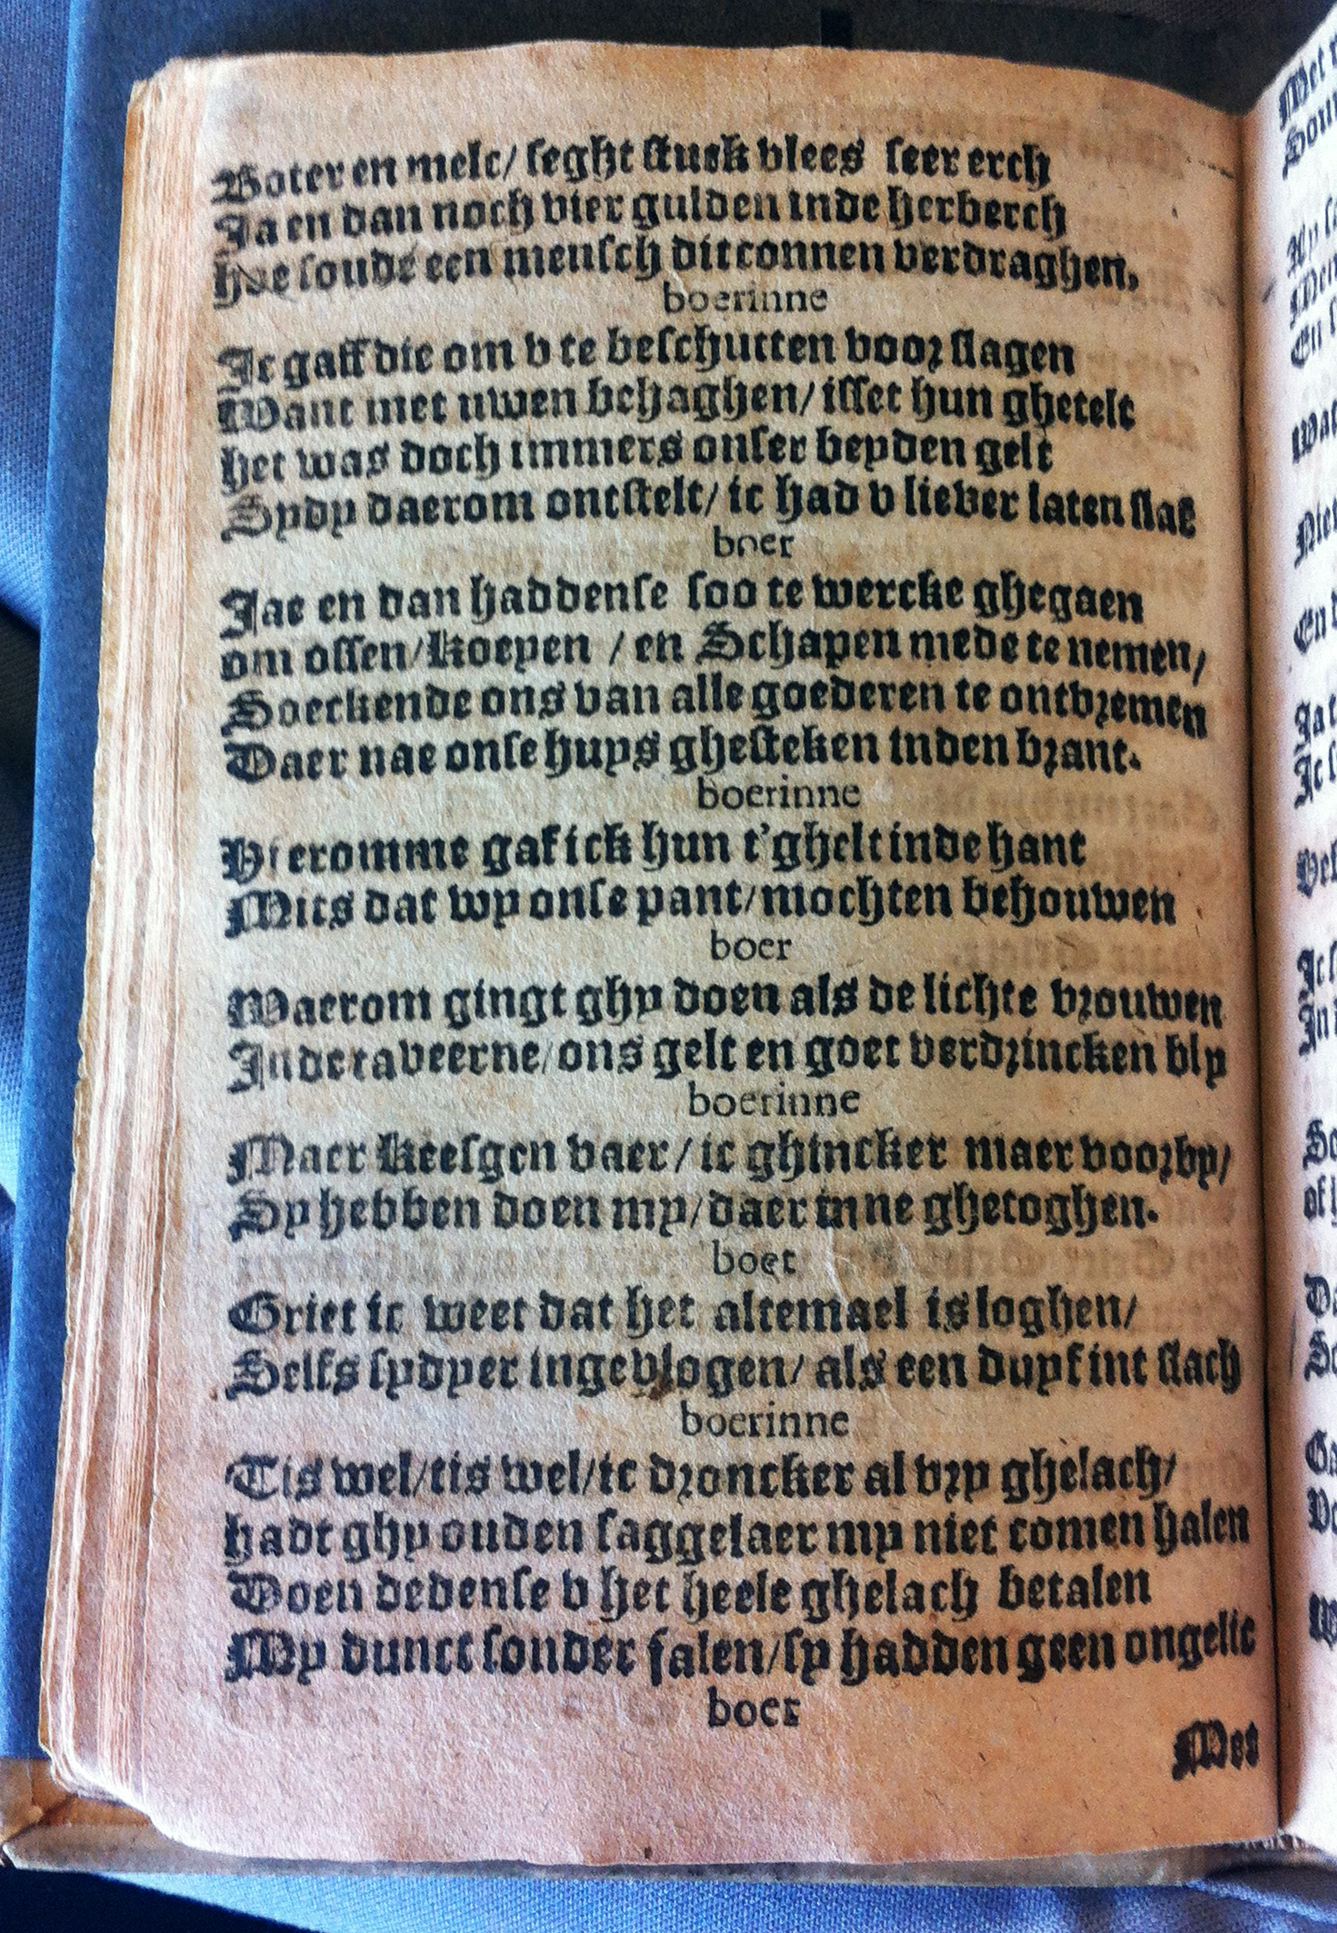 Boter en melc/ seght stuck vlees seer erch
Ja en dan noch vier gulden inde herberch
hoe soude een mensch dit connen verdraghen,
boerinne
Ic gaff die om v te beschutten voor slagen
Want met uwen behaghen/ isset hun ghetelt
het was doch immers onser beyden gelt
Sydy daerom ontstelt/ ic had v liever laten slaẽ
boer
Jae en dan haddense soo te wercke ghegaen
om ossen/ koeyen / en Schapen mede te nemen/
Soeckende ons van alle goederen te ontvremen
Daer nae onse huys ghesteken inden brant.
boerinne
Hieromme gaf ick hun t'ghelt inde hant
Mits dat wy onse pant/ mochten behouwen
boer
Waerom gingt ghy doen als de lichte vrouwen
In de taveerne/ ons gelt en goet verdrincken bly
boerinne
Maer Keesgen vaer/ ic ghincker maer voorby/
Sy hebben doen my/ daer inne ghetoghen.
boer
Griet ic weet dat het altemael is loghen/
Selfs sydyer ingevlogen/ als een duyf int slach
boerinne
Tis wel/ tis wel/ ic droncker al vry ghelach/
hadt ghy ouden saggelaer my niet comen halen
Doen dedense v het heele ghelach betalen
My dunct sonder falen/ sy hadden geen ongelic
boer
Met